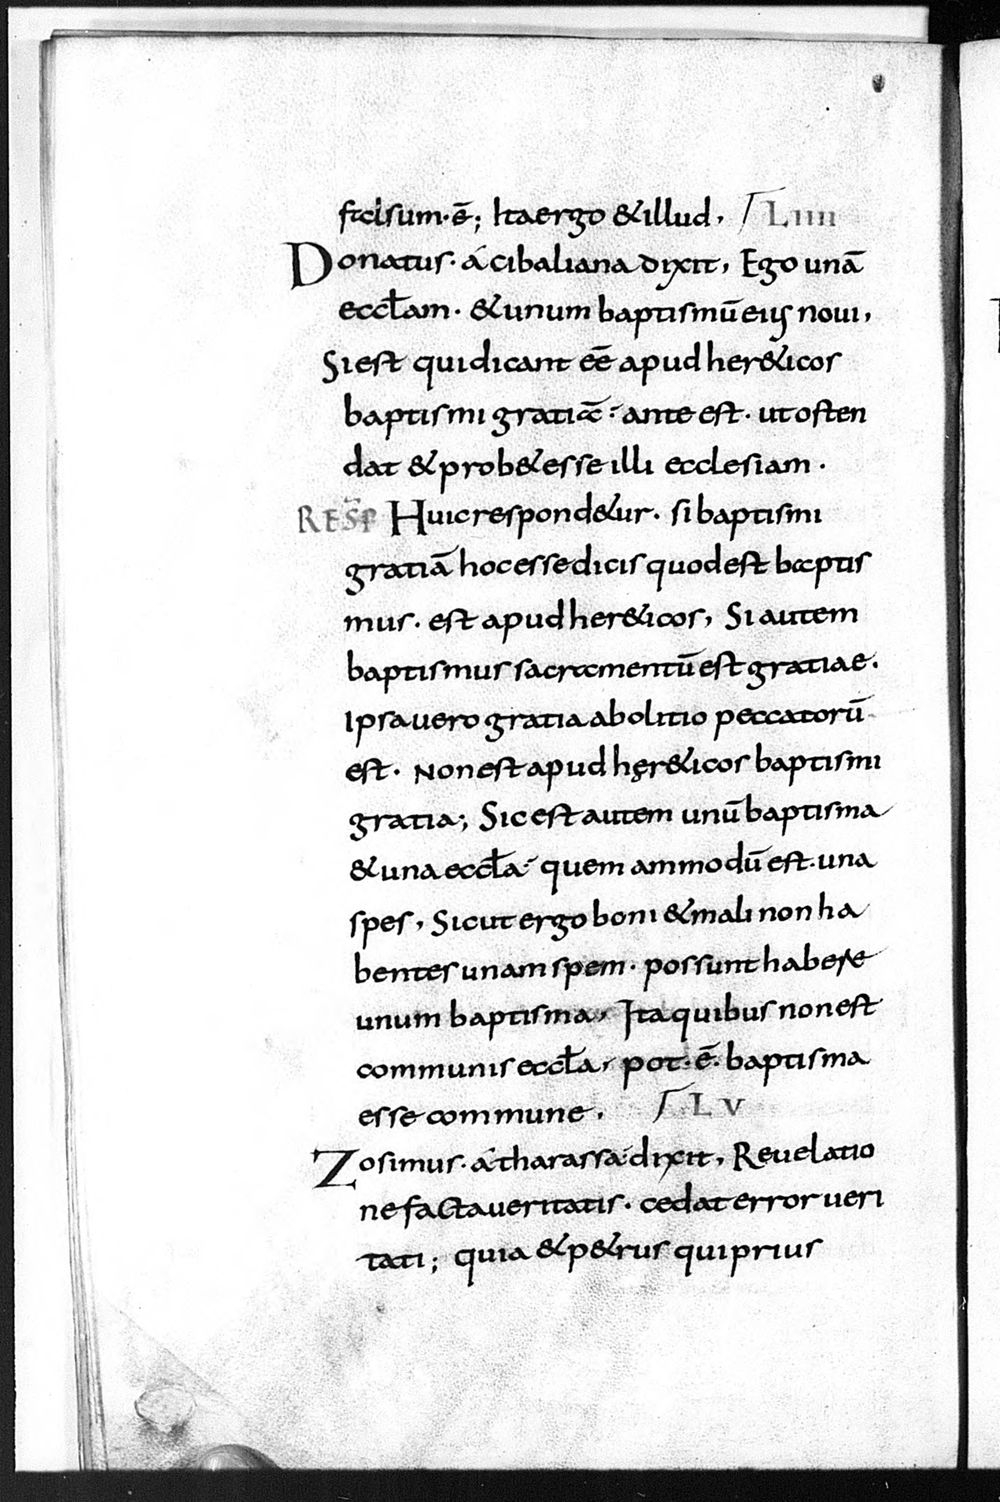 ftclsum·ē; Ita ergo &illud, LIIII
Donatus· á cibaliana dixit, Ego unā
eccl̄am· & unum baptismū eiꝰ noui,
Si est qui dicant eē apud her&icos
baptismi gratiā ante est· ut osten
dat & prob& esse illi ecclesiam·
RESP̄ Huic respond&ur· si baptismi
gratiā hoc esse dicis quod est baptis
mus· est apud her&icos, Si autem
baptismus sacramentū est gratiae·
Ipsa uero gratia abolitio peccatorū
est· Non est apud hęr&icos baptismi
gratia; Sic est autem unū baptisma
& una eccl̄a quem ammodū est· una
spes, Sicut ergo boni & mali non ha
bentes unam spem· possunt habere
unum baptisma, Ita quibus non est
communis eccl̄a, pot·ē· baptisma
esse commune. LV
Zosimus· á tharassa dixit, Reuelatio
ne facta ueritatis· cedat error ueri
tati; quia & p&rus qui prius